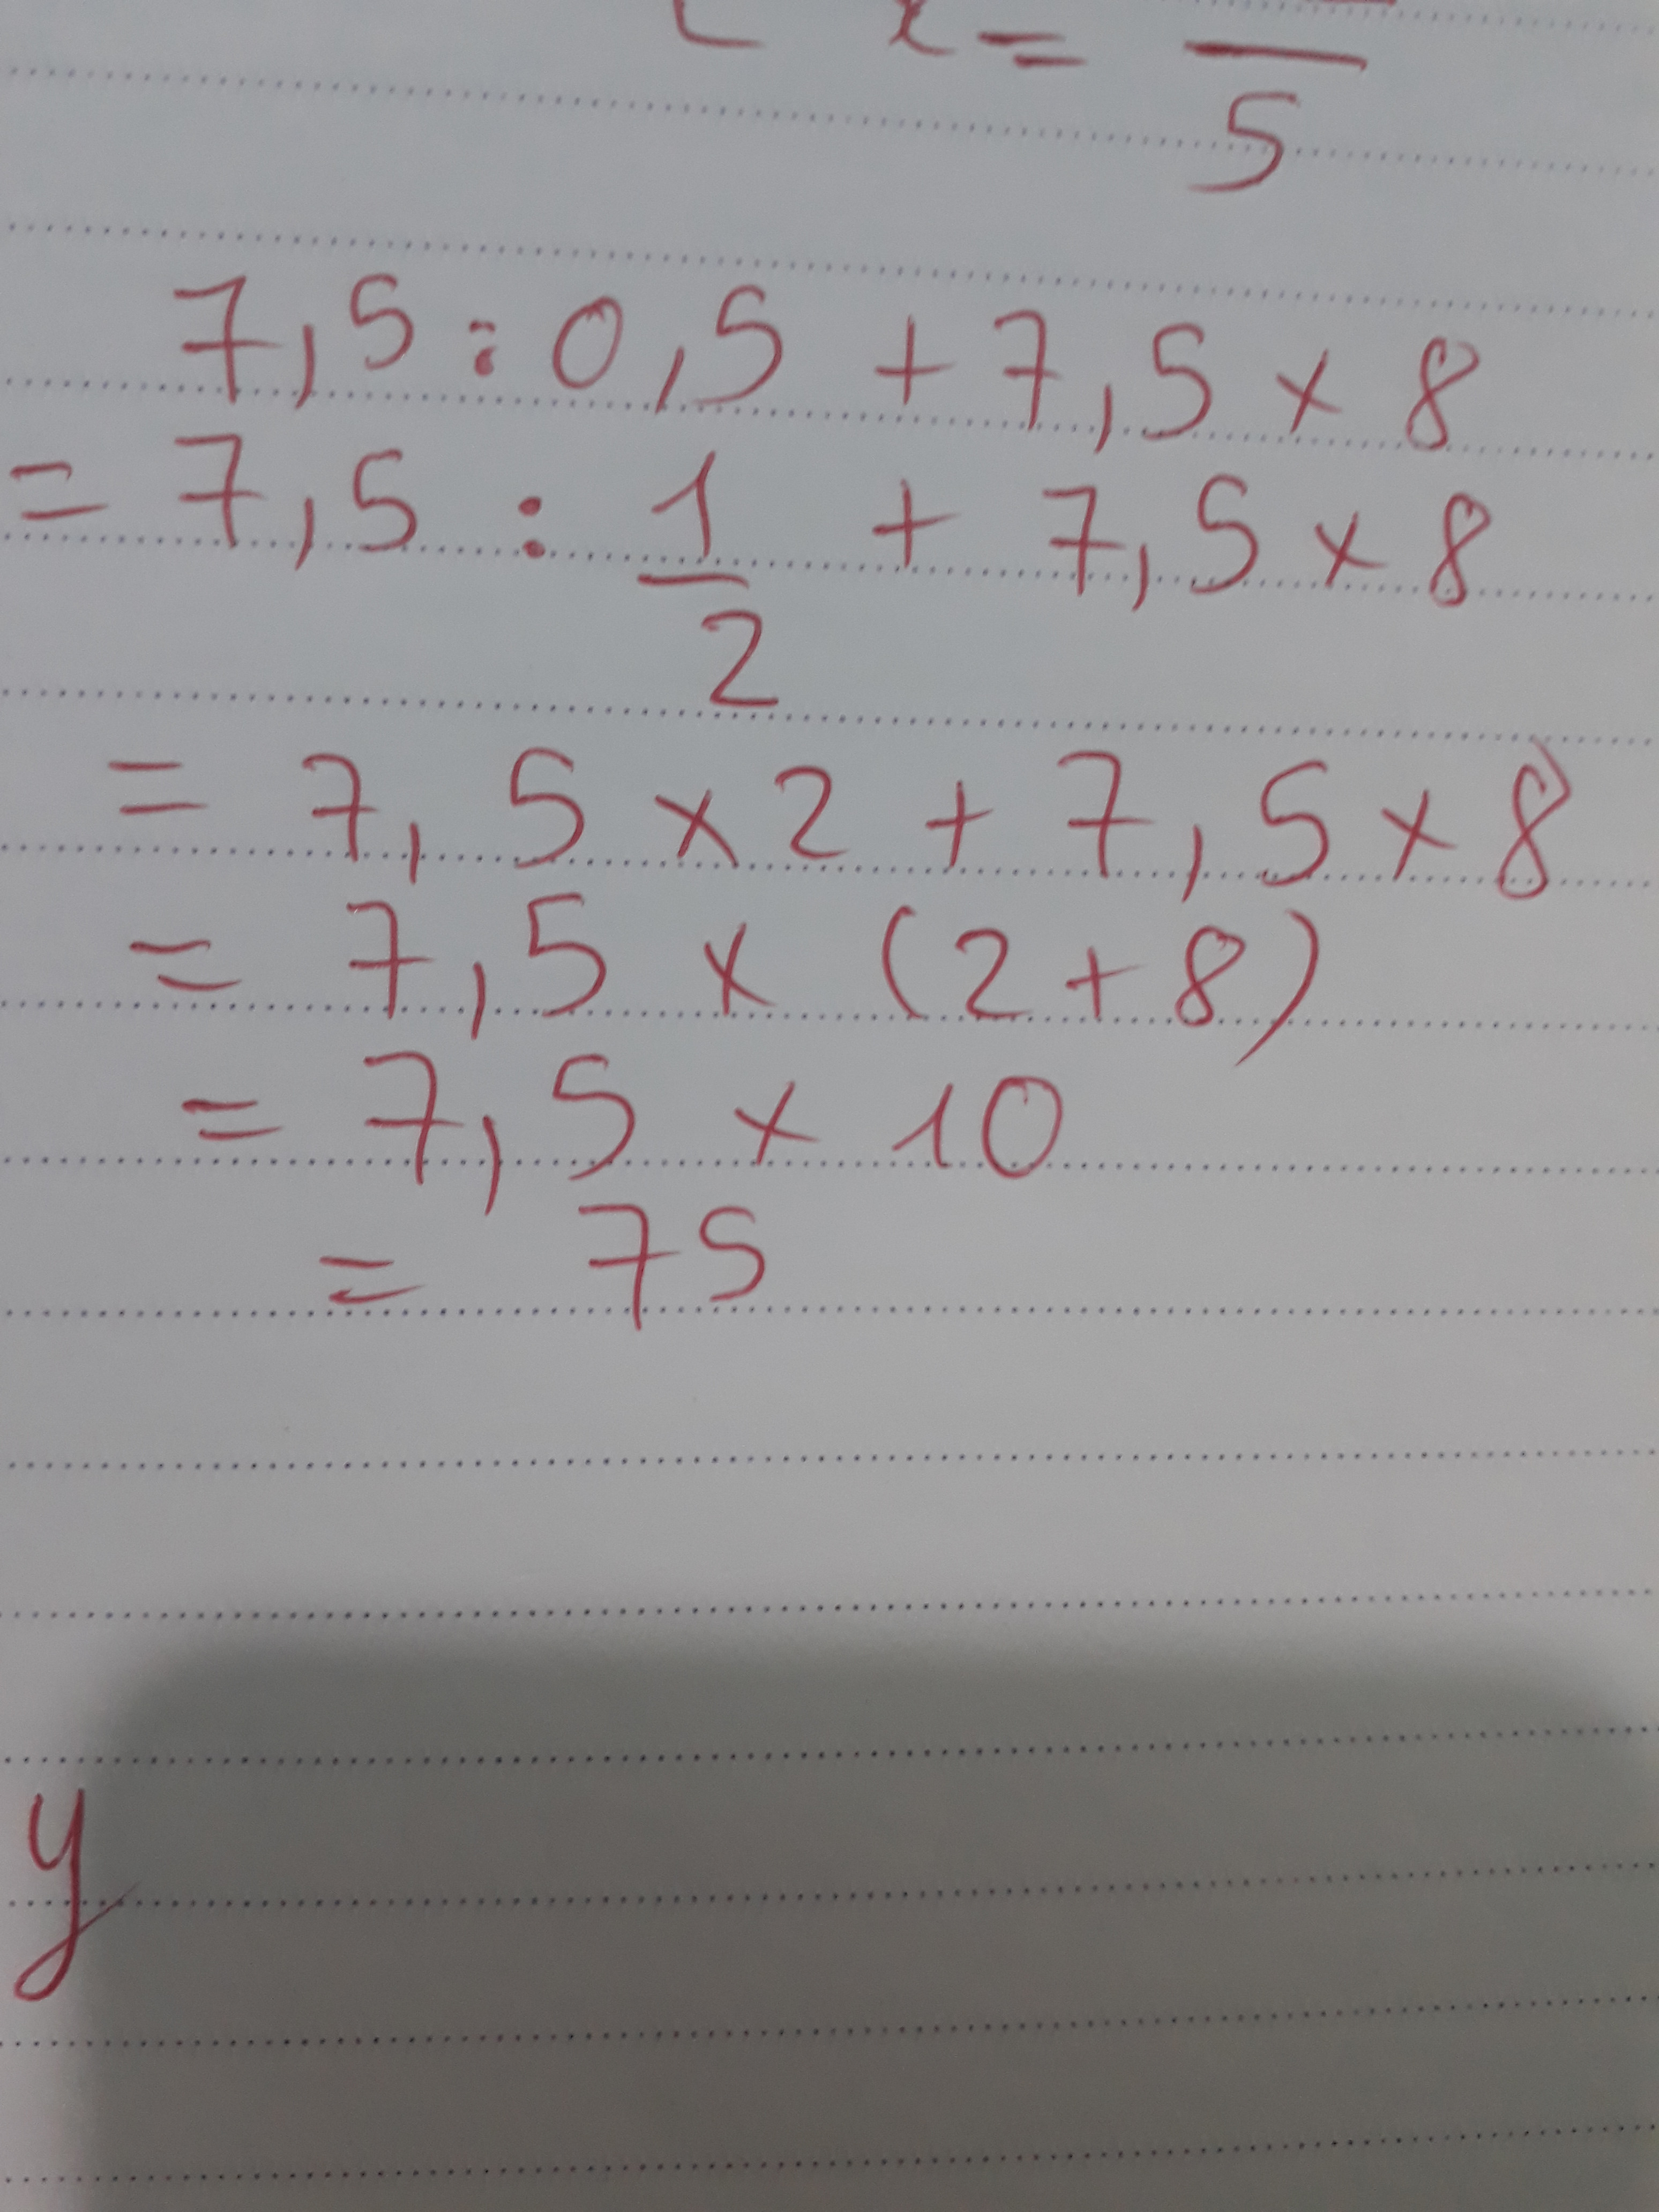 x =
5
7,5 : 0,5 + 7,5 x 8
= 7,5 : 1/2 + 7,5 x 8
= 7,5 x 2 + 7,5 x 8
= 7,5 x (2 + 8)
= 7,5 x 10
= 75
y